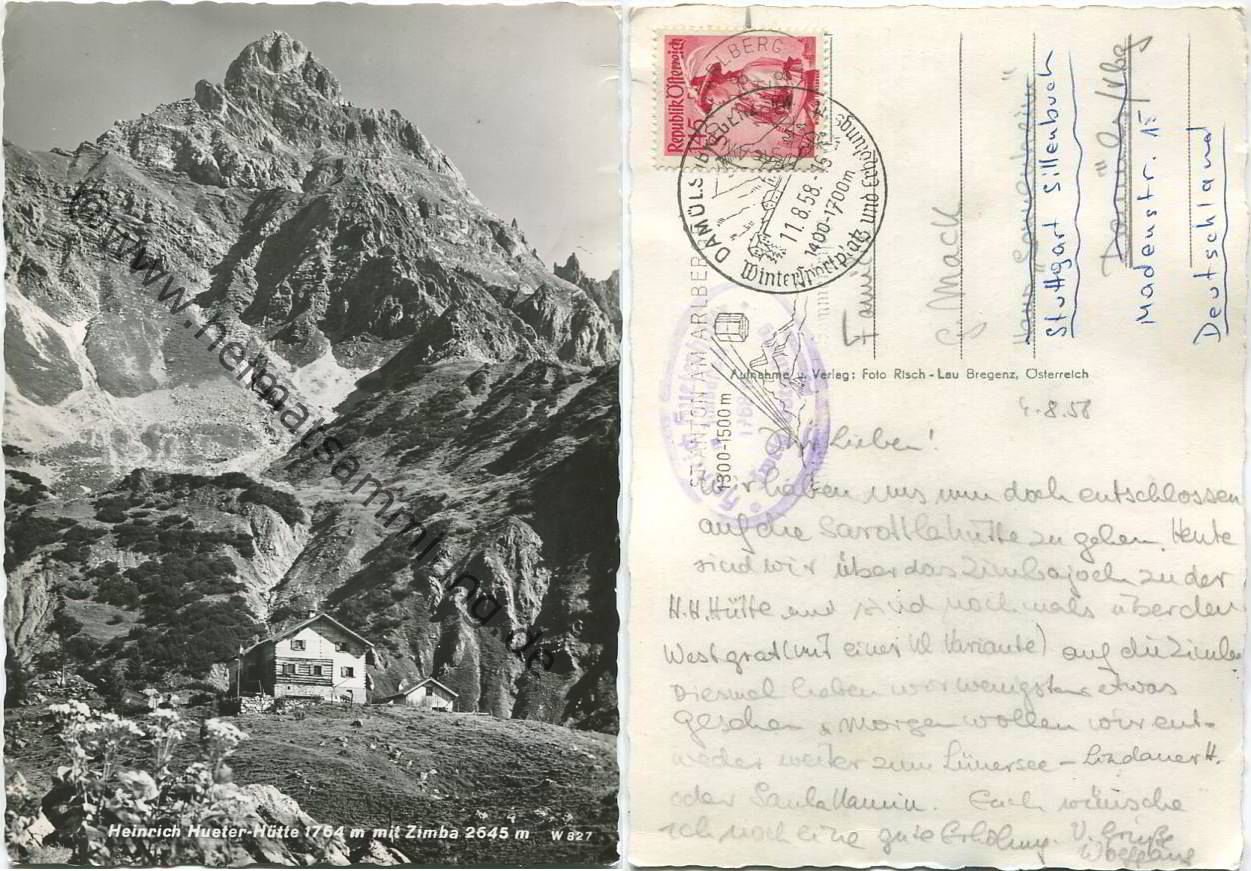 Heinrich Hueter-Hütte 1764 m mit Zimba 2645 m W 827
© www.heimatsammlung.de
Republik Österreich
DAMÜLS
11.8.58.-15
1400-1700m
Wintersportplatz und Erholungs
ST. ANTON AM ARLBERG
1300-1500 m
Famil
G. Mack
Stuttgart Sillenbuch
Damüls/Vbg
Madenstr. 15
Deutschland
Aufnahme u. Verlag: Foto Risch-Lau Bregenz, Österreich
.8.58
Lieben!
Wir haben uns nun doch entschlossen
auf die Sarottlahütte zu gehen. Heute
sind wir über das Zimbajoch zu der
H.H. Hütte und sind nochmals über den
Westgrat (mit einer VI Variante) auf die Zimba
Diesmal haben wir wenigstens etwas
gesehen. Morgen wollen wir ent-
weder weiter zum Lünersee - Lindauer H.
oder Saulakamin. Euch wünsche
ich noch eine gute Erholung. V. Grüße
Wolfgang